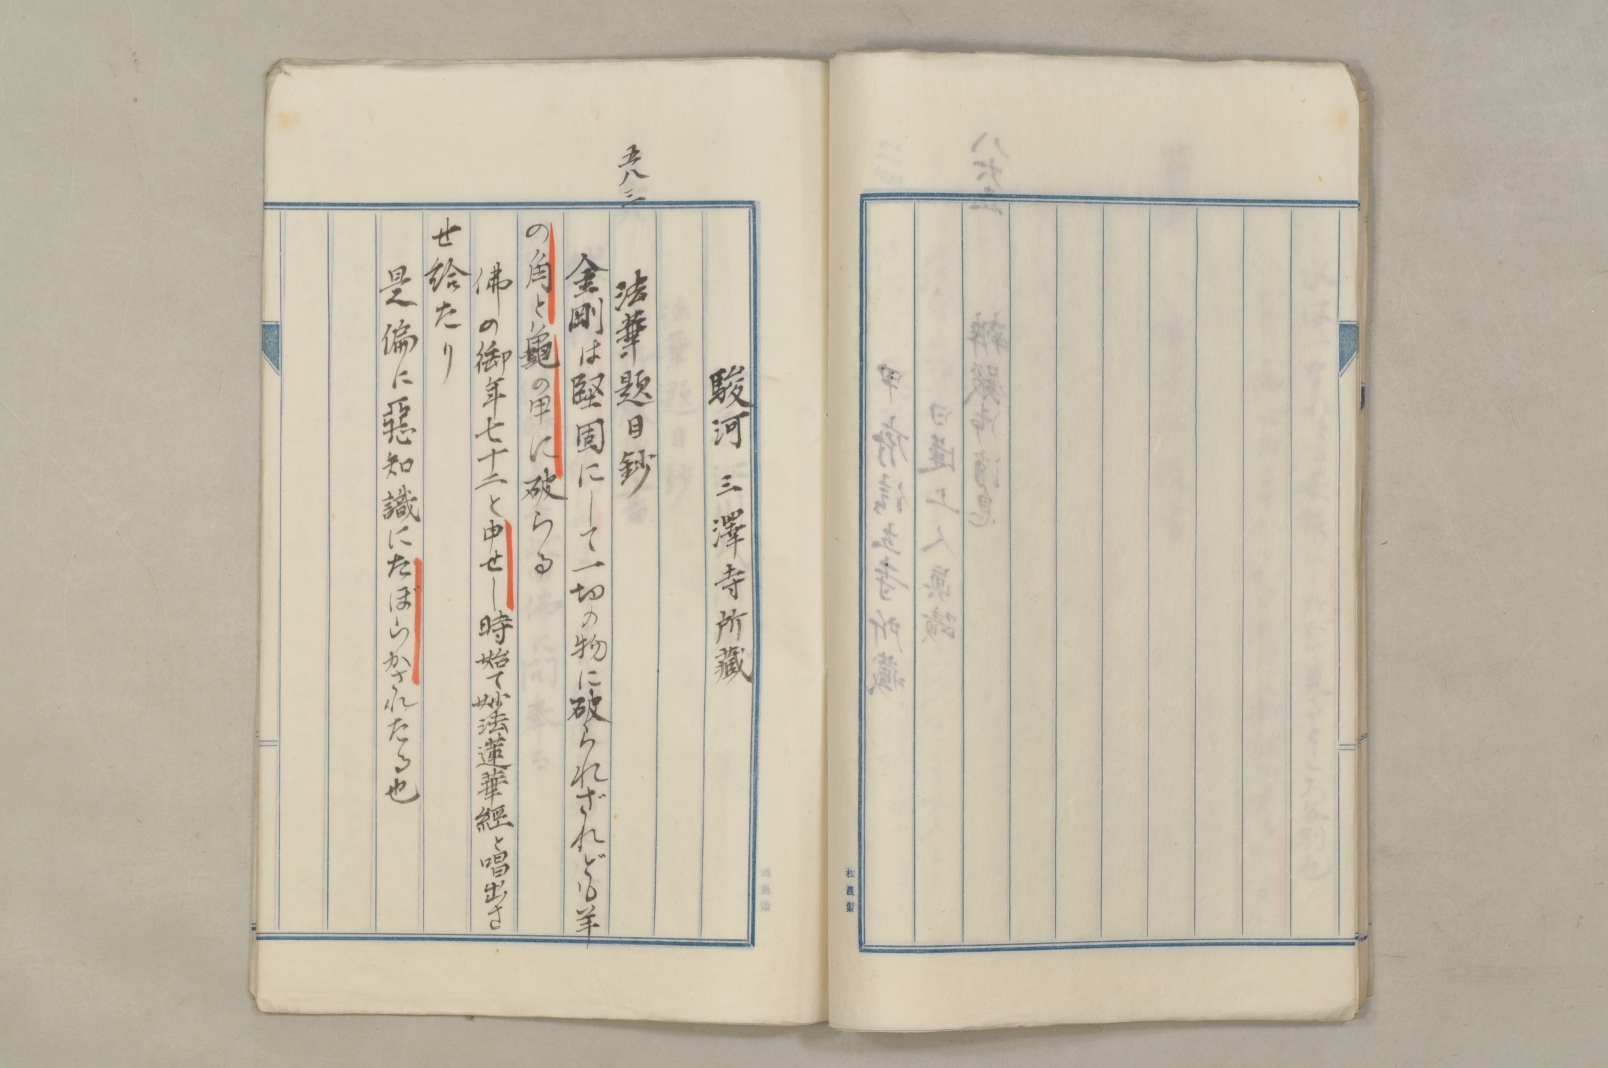 駿河三澤寺所藏
五八三
法華題目鈔
金剛は堅固にして一切の物に破られざれども羊
の角と龜の甲に破らる
佛の御年七十二と申せし時始て妙法蓮華經と唱出さ
せ給たり
是偏に惡知識にたぼらかされたる也